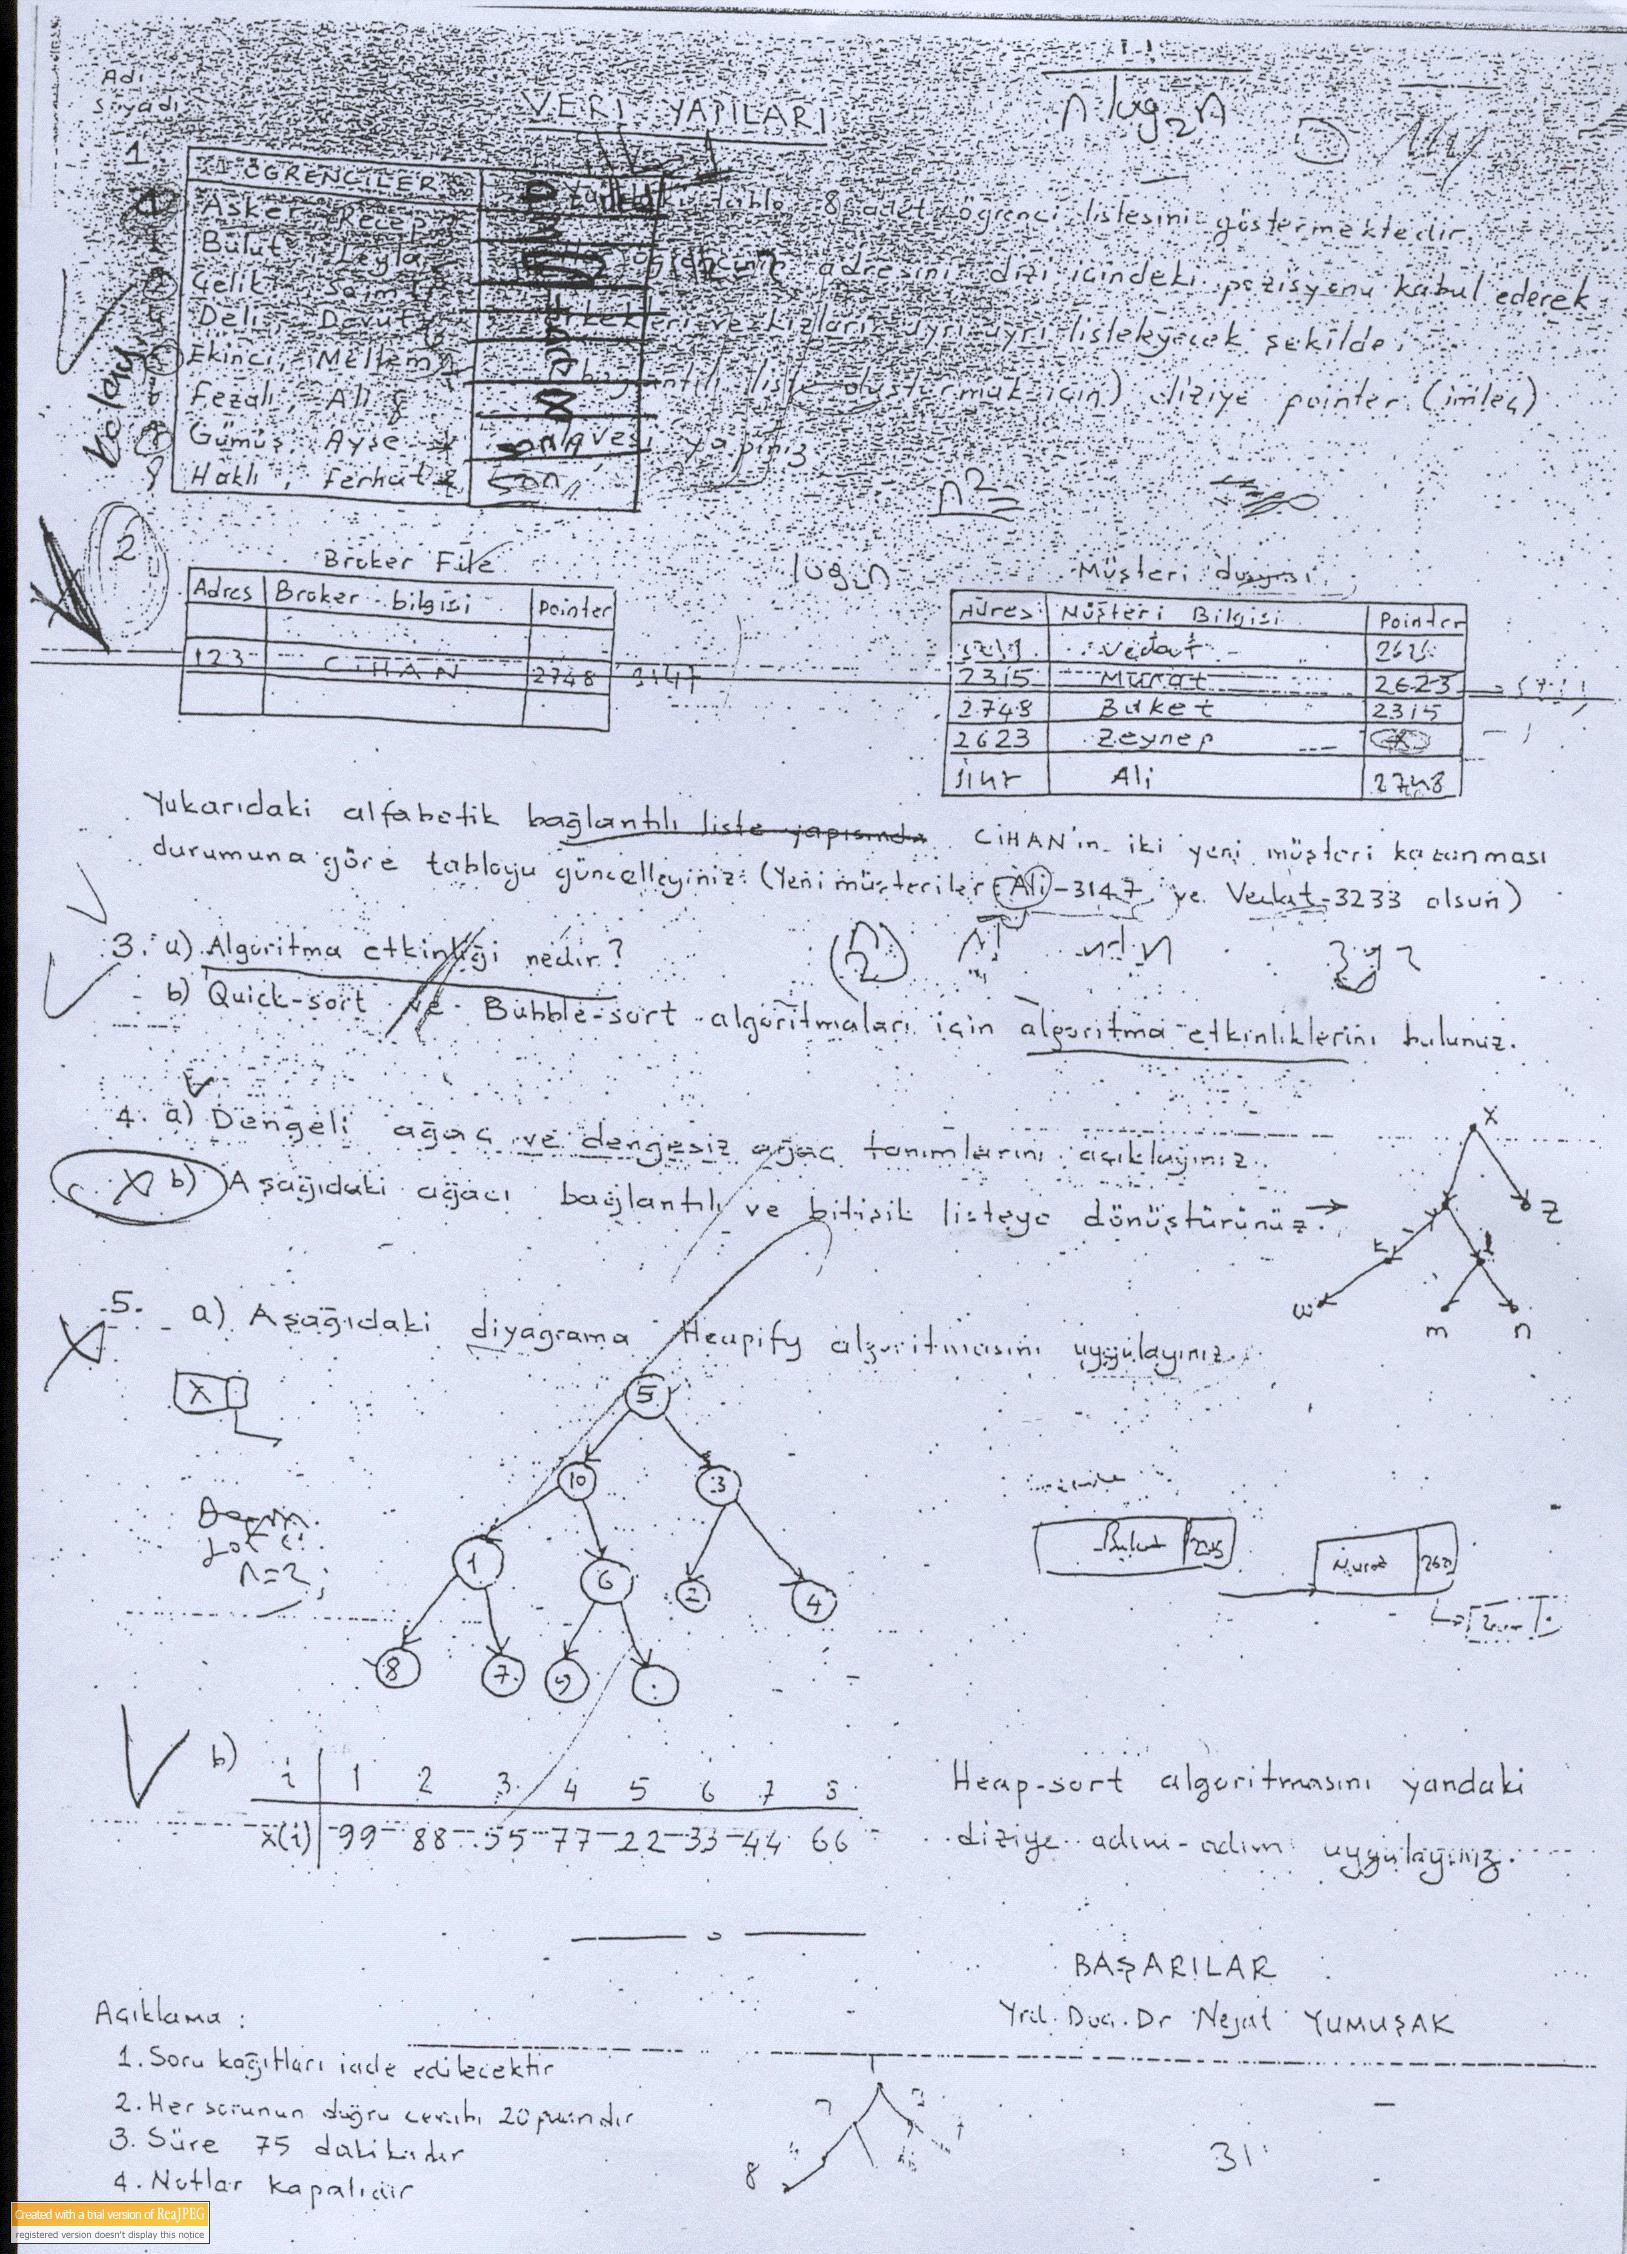 Adı
Soyadı
VERİ YAPILARI
n log₂n
1
ÖĞRENCİLER
Asker, Recep
Bulut, Leyla
Çelik, Saim
Deli, Davut
Ekinci, Meltem
Fezalı, Ali
Gümüş, Ayşe
Haklı, Ferhat
Son
tablo 8 adet öğrenci listesini göstermektedir.
öğrencinin adresini dizi içindeki pozisyonu kabul ederek
ve kızları ayrı ayrı listeleyecek şekilde
liste oluşturmak için) diziye pointer (imleç)
yapınız
n²
kolay
2
Broker File
Adres Broker bilgisi pointer
123 CİHAN 2748 3147
log₂n
Müşteri dosyası
Adres Müşteri Bilgisi Pointer
Vedat
2315 Murat 2623
2748 Buket 2315
2623 Zeynep
Ali 2748
Yukarıdaki alfabetik bağlantılı liste yapısında CİHAN'ın iki yeni müşteri kazanması
durumuna göre tabloyu güncelleyiniz. (Yeni müşteriler Ali-3147 ve Vedat-3233 olsun)
3. a) Algoritma etkinliği nedir?
b) Quick-sort ve Bubble-sort algoritmaları için algoritma etkinliklerini bulunuz.
4. a) Dengeli ağaç ve dengesiz ağaç tanımlarını açıklayınız.
b) Aşağıdaki ağacı bağlantılı ve bitişik listeye dönüştürünüz.
X
Y Z
t l
w m n
5. a) Aşağıdaki diyagrama Heapify algoritmasını uygulayınız.
X
5
10 3
1 6 2 4
8 7 9
n=2
Murat
b) i 1 2 3 4 5 6 7 8
x(i) 99 88 55 77 22 33 44 66
Heap-sort algoritmasını yandaki
diziye adım-adım uygulayınız.
BAŞARILAR
Yrd. Doç. Dr Nejat YUMUŞAK
Açıklama :
1. Soru kağıtları iade edilecektir
2. Her sorunun doğru cevabı 20 puandır
3. Süre 75 dakikadır
4. Notlar kapalıdır
8
31
Created with a trial version of ReaJPEG
registered version doesn't display this notice